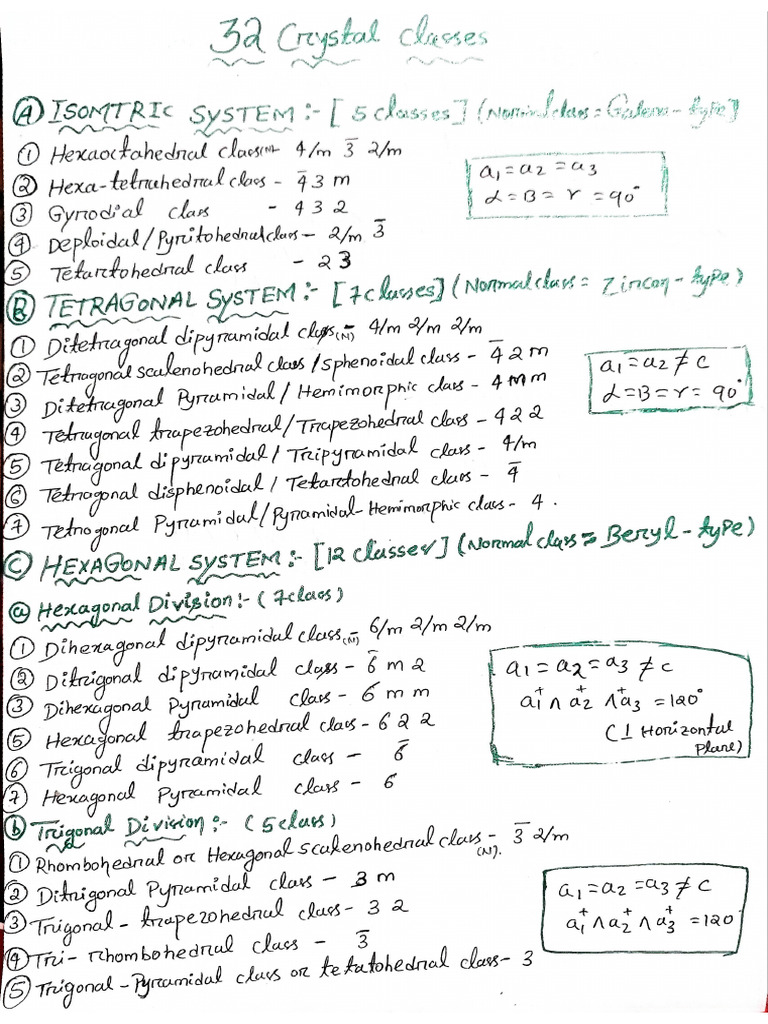 32 Crystal Classes
Ⓐ ISOMTRIC SYSTEM :- [5 classes] (Normal class = Galena - type]
① Hexaoctahedral class(N)- 4/m 3̅ 2/m
② Hexa-tetrahedral class - 4̅ 3 m
③ Gyrodial class - 4 3 2
④ Deploidal/Pyritohedral class - 2/m 3̅
⑤ Tetartohedral class - 2 3
a₁ = a₂ = a₃
α = B = γ = 90°
Ⓑ TETRAGONAL SYSTEM :- [7 classes] (Normal class = Zircon - type)
① Ditetragonal dipyramidal class(N)- 4/m 2/m 2/m
② Tetragonal scalenohedral class / sphenoidal class - 4̅ 2 m
③ Ditetragonal Pyramidal / Hemimorphic class - 4 m m
④ Tetragonal trapezohedral / Trapezohedral class - 4 2 2
⑤ Tetragonal dipyramidal / Tripyramidal class - 4/m
⑥ Tetragonal disphenoidal / Tetartohedral class - 4̅
⑦ Tetrogonal Pyramidal/Pyramidal-Hemimorphic class - 4 .
a₁ = a₂ ≠ c
α = B = γ = 90°
Ⓒ HEXAGONAL SYSTEM :- [12 classes] (Normal class = Beryl - type)
ⓐ Hexagonal Division :- (7 class)
① Dihexagonal dipyramidal class(N)- 6/m 2/m 2/m
② Ditrigonal dipyramidal class - 6̅ m 2
③ Dihexagonal Pyramidal class - 6 m m
⑤ Hexagonal trapezohedral class - 6 2 2
⑥ Trigonal dipyramidal class - 6̅
⑦ Hexagonal Pyramidal class - 6
a₁ = a₂ = a₃ ≠ c
a₁⁺ ∧ a₂⁺ ∧ a₃⁺ = 120°
(⊥ Horizontal
Plane)
ⓑ Trigonal Division :- (5 class)
① Rhombohedral or Hexagonal scalenohedral class(N). - 3̅ 2/m
② Ditrigonal Pyramidal class - 3 m
③ Trigonal - trapezohedral class - 3 2
④ Tri - rhombohedral class - 3̅
⑤ Trigonal - Pyramidal class or tetatohedral class - 3
a₁ = a₂ = a₃ ≠ c
a₁⁺ ∧ a₂⁺ ∧ a₃⁺ = 120